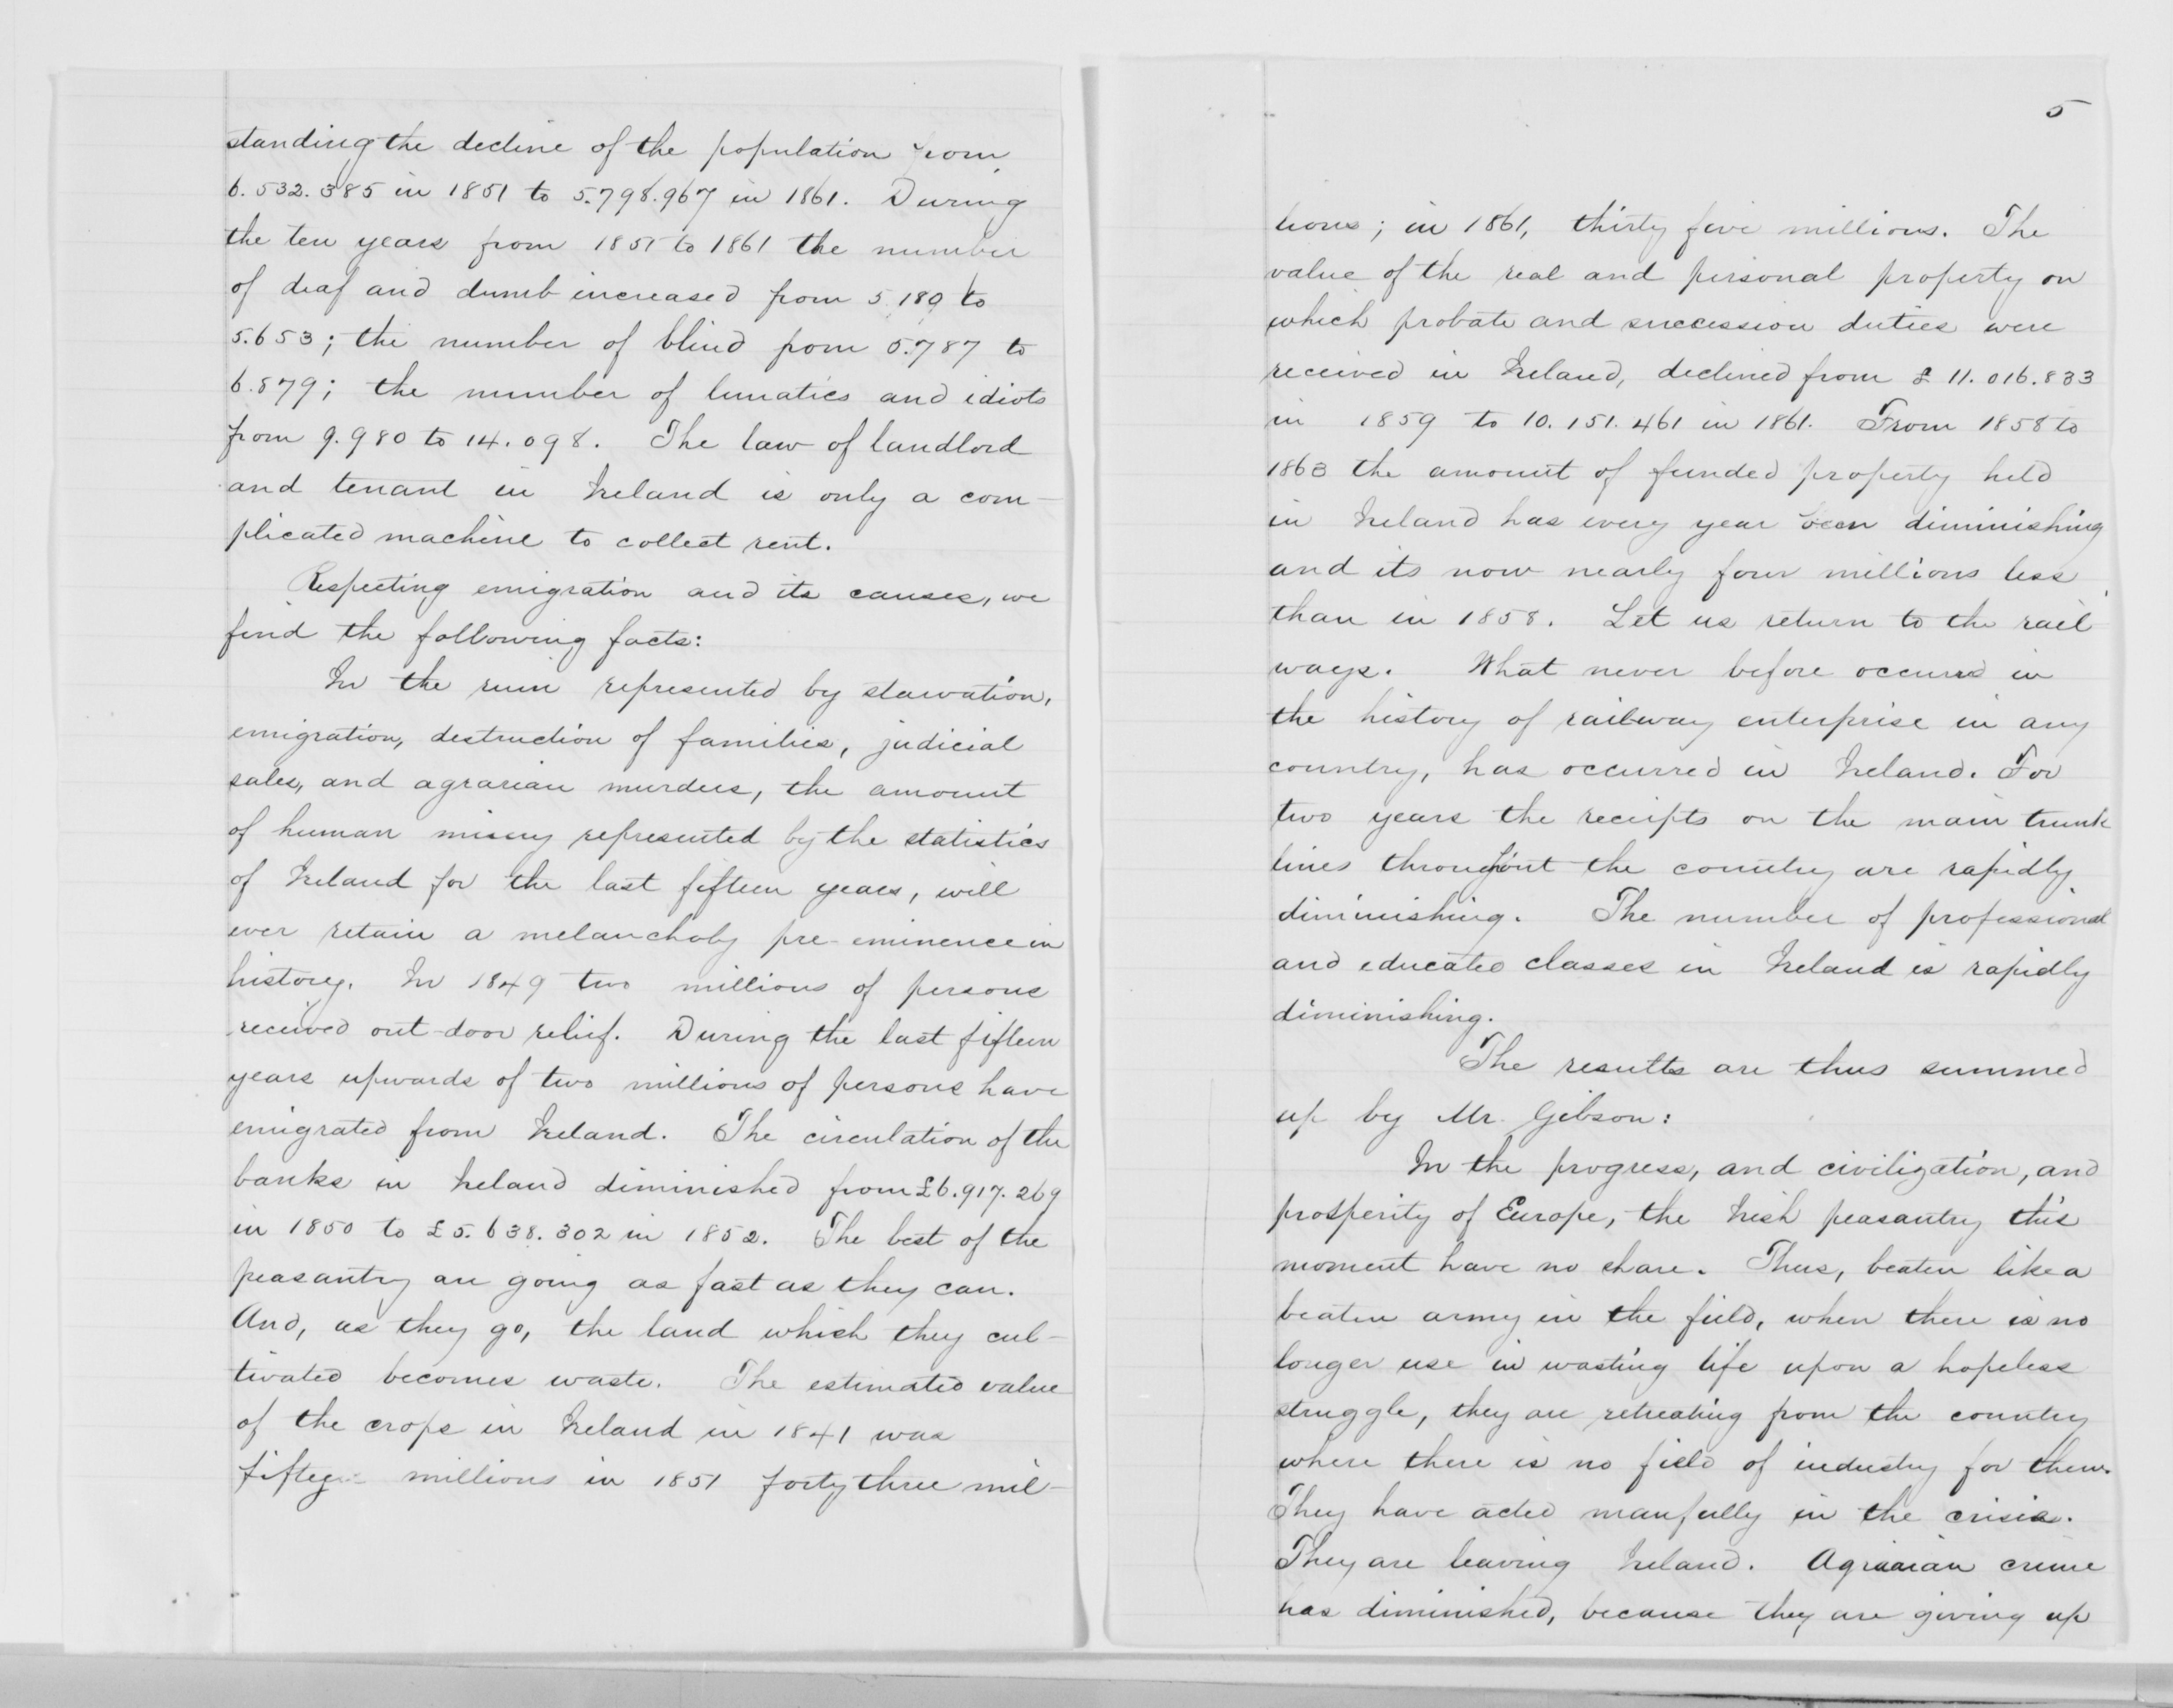 standing the decline of the population from
6.532.385 in 1851 to 5.798.967 in 1861. During
the ten years from 1851 to 1861 the number
of deaf and dumb increased from 5.180 to
5.653; the number of blind from 5.787 to
6.879; the number of lunatics and idiots
from 9.980 to 14.098. The law of landlord
and tenant in Ireland is only a com-
plicated machine to collect rent.
Respecting emigration and its causes, we
find the following facts:
In the ruin represented by starvation,
emigration, destruction of families, judicial
sales, and agrarian murders, the amount
of human misery represented by the statistics
of Ireland for the last fifteen years, will
ever retain a melancholy pre-eminence in
history. In 1849 two millions of persons
received out-door relief. During the last fifteen
years upwards of two millions of persons have
emigrated from Ireland. The circulation of the
banks in Ireland diminished from £6.917.269
in 1850 to £5.638.302 in 1852. The best of the
peasantry are going as fast as they can.
And, as they go, the land which they cul-
tivated becomes waste. The estimated value
of the crops in Ireland in 1841 was
fifty millions in 1851 forty three mil-
5
lions; in 1861, thirty five millions. The
value of the real and personal property on
which probate and succession duties were
received in Ireland, declined from £11.016.833
in 1859 to 10.151.461 in 1861. From 1858 to
1863 the amount of funded property held
in Ireland has every year been diminishing
and its now nearly four millions less
than in 1858. Let us return to the rail
ways. What never before occurred in
the history of railway enterprise in any
country, has occurred in Ireland. For
two years the receipts on the main trunk
lines throughout the country are rapidly
diminishing. The number of professional
and educated classes in Ireland is rapidly
diminishing.
The results are thus summed
up by Mr. Gibson:
In the progress, and civilization, and
prosperity of Europe, the Irish peasantry this
moment have no share. Thus, beaten like a
beaten army in the field, when there is no
longer use in wasting life upon a hopeless
struggle, they are retreating from the country
where there is no field of industry for them.
They have acted manfully in the crisis.
They are leaving Ireland. Agrarian crime
has diminished, because they are giving up